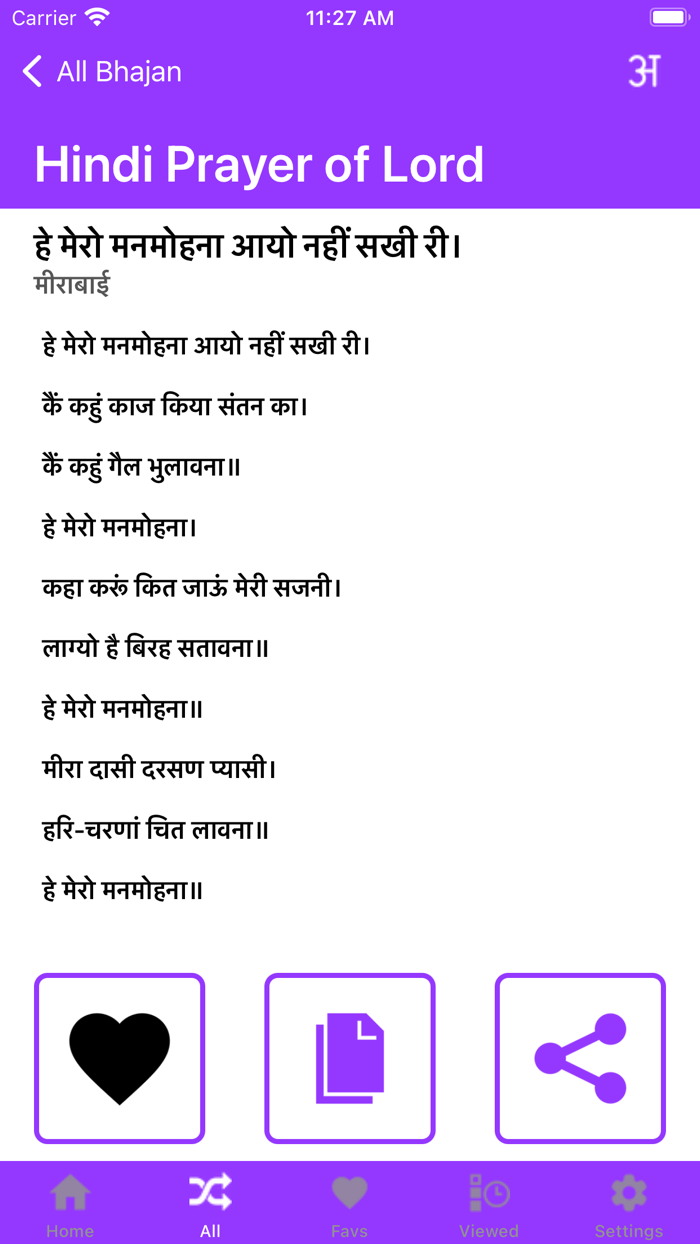 Carrier 11:27 AM
All Bhajan अ
Hindi Prayer of Lord
हे मेरो मनमोहना आयो नहीं सखी री।
मीराबाई
हे मेरो मनमोहना आयो नहीं सखी री।
कैं कहुं काज किया संतन का।
कैं कहुं गैल भुलावना॥
हे मेरो मनमोहना।
कहा करूं कित जाऊं मेरी सजनी।
लाग्यो है बिरह सतावना॥
हे मेरो मनमोहना॥
मीरा दासी दरसण प्यासी।
हरि-चरणां चित लावना॥
हे मेरो मनमोहना॥
Home All Favs Viewed Settings